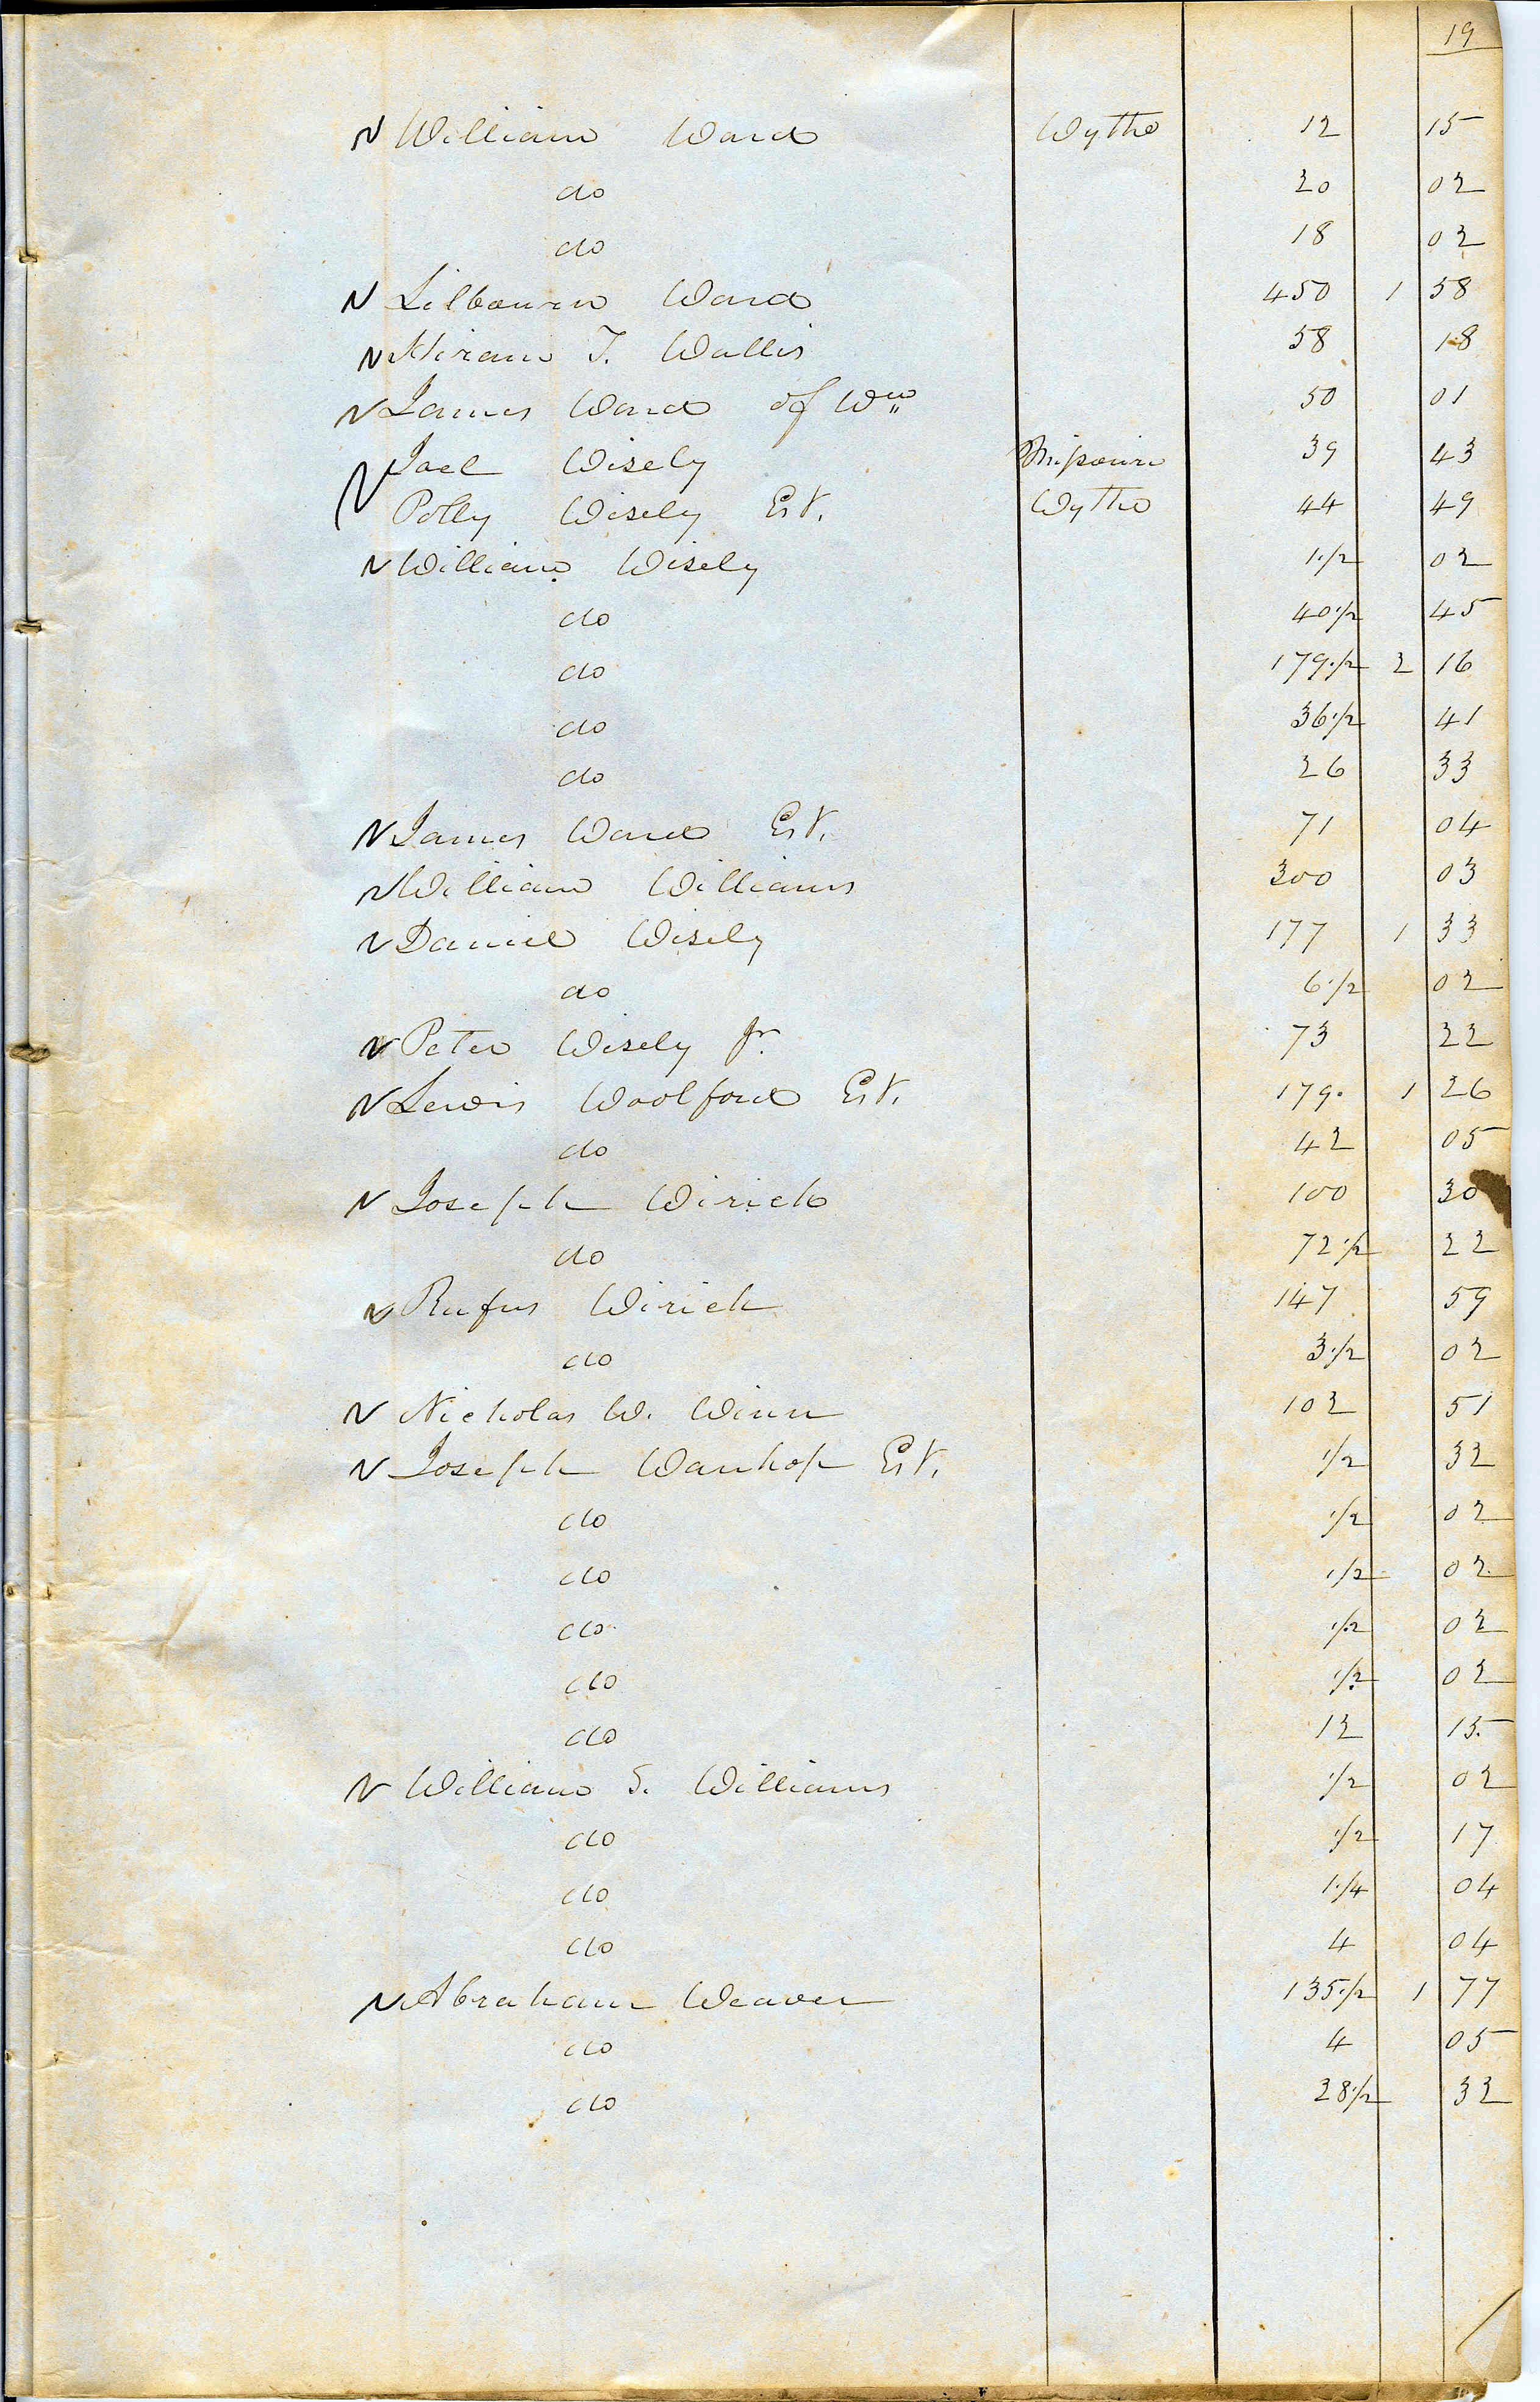 19
William Ward Wythe 12 15
do 20 02
do 18 02
Lilbourn Ward 450 1 58
Hiram T. Wallis 58 18
James Ward of Wm 50 01
Joel Wisely Missouri 39 43
Polly Wisely Est. Wythe 44 49
William Wisely 1 1/2 02
do 40 1/2 45
do 179 1/2 2 16
do 36 1/2 41
do 26 33
James Ward Est. 71 04
William Williams 300 03
Daniel Wisely 177 1 33
do 6 1/2 02
Peter Wisely Jr. 73 22
Lewis Woolford Est. 179 1 26
do 42 05
Joseph Wirick 100 30
do 72 1/2 22
Rufus Wirick 147 59
do 3 1/2 02
Nicholas W. Winn 102 51
Joseph Wauhop Est. 1/2 32
do 1/2 02
do 1/2 02
do 1/2 02
do 1/2 02
do 12 15
William S. Williams 1/2 02
do 1/2 17
do 1/4 04
do 4 04
Abraham Weaver 135 1/2 1 77
do 4 05
do 28 1/2 32